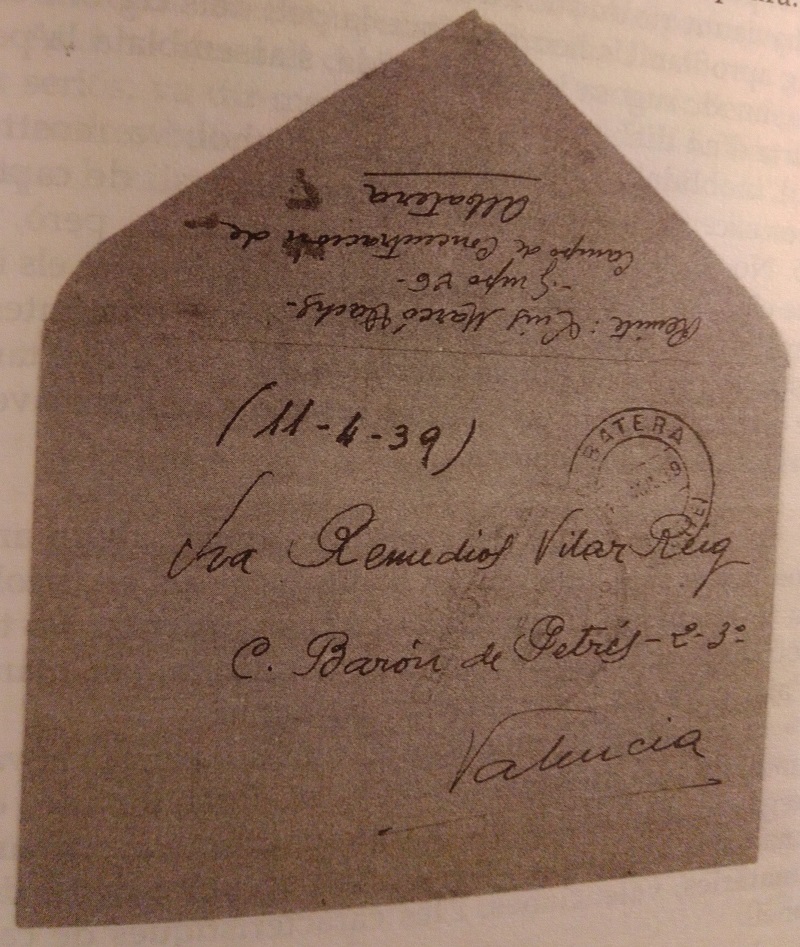 Remite: Luis Marcó
- Grupo 26 -
Campo de Concentración de
Albatera
(11-4-39)
BATERA
Sra Remedios Vilar Reig
C. Barón de Petrés - 2 - 3º
Valencia